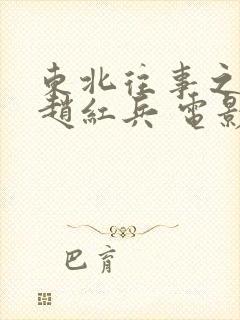 東北往事之
趙紅兵 電影
巴育